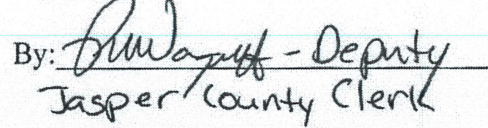 By: - Deputy
Jasper County Clerk